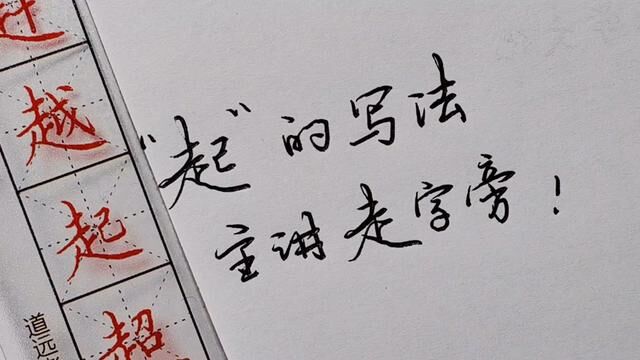 越
起
超
道远
"起"的写法
主讲走字旁！